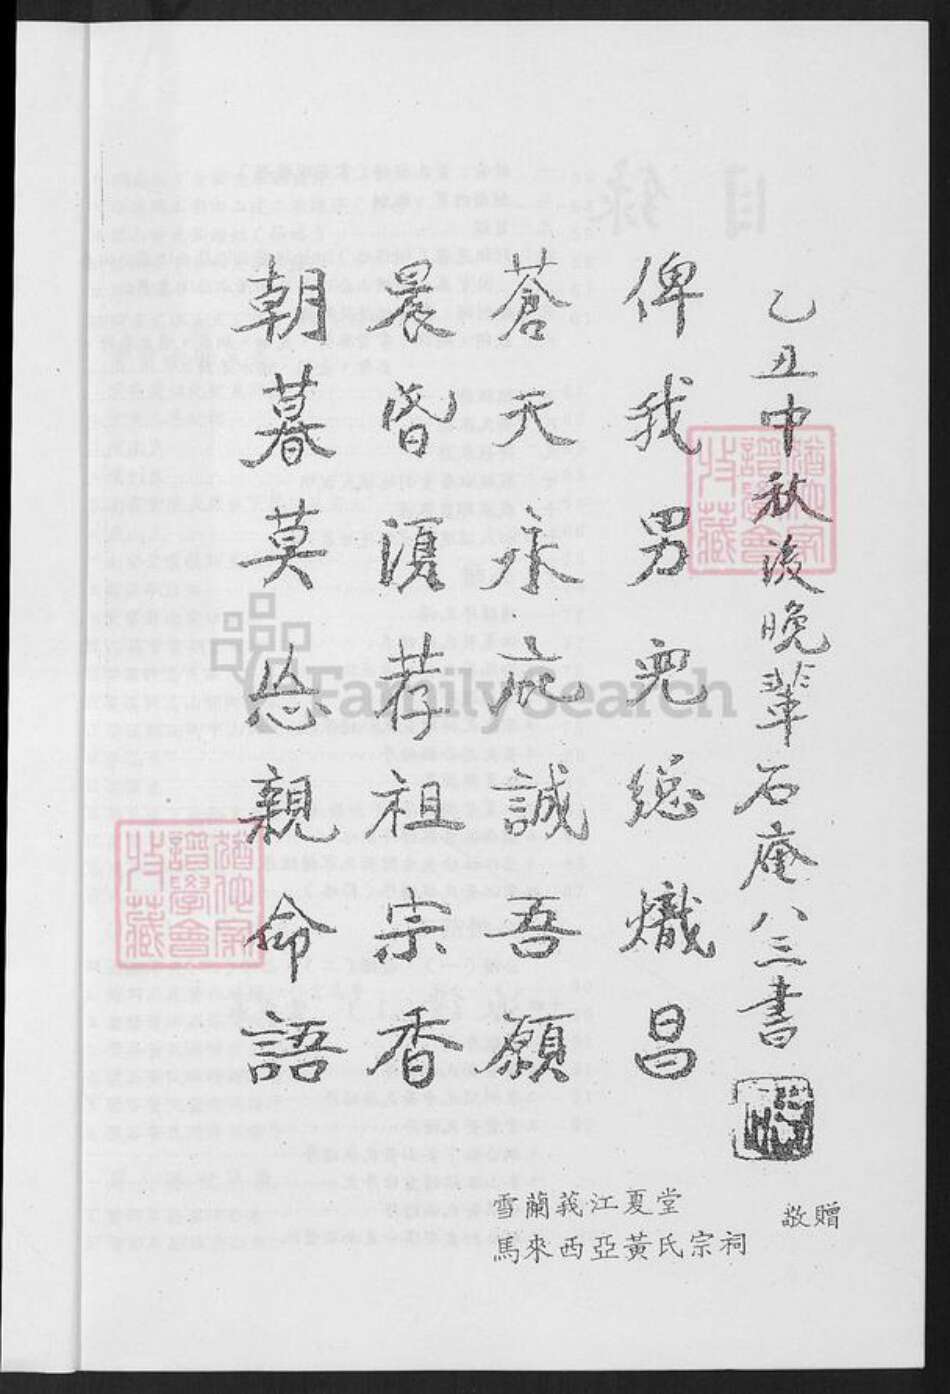 朝暮莫忘親命語
晨昏須荐祖宗香
蒼天永庇誠吾願
俾我男兒總熾昌
乙丑中秋後晚輩石庵八三書
雪蘭莪江夏堂
馬來西亞黃氏宗祠
敬贈
猶他家
譜學會
收藏
猶他家
譜學會
收藏
FamilySearch